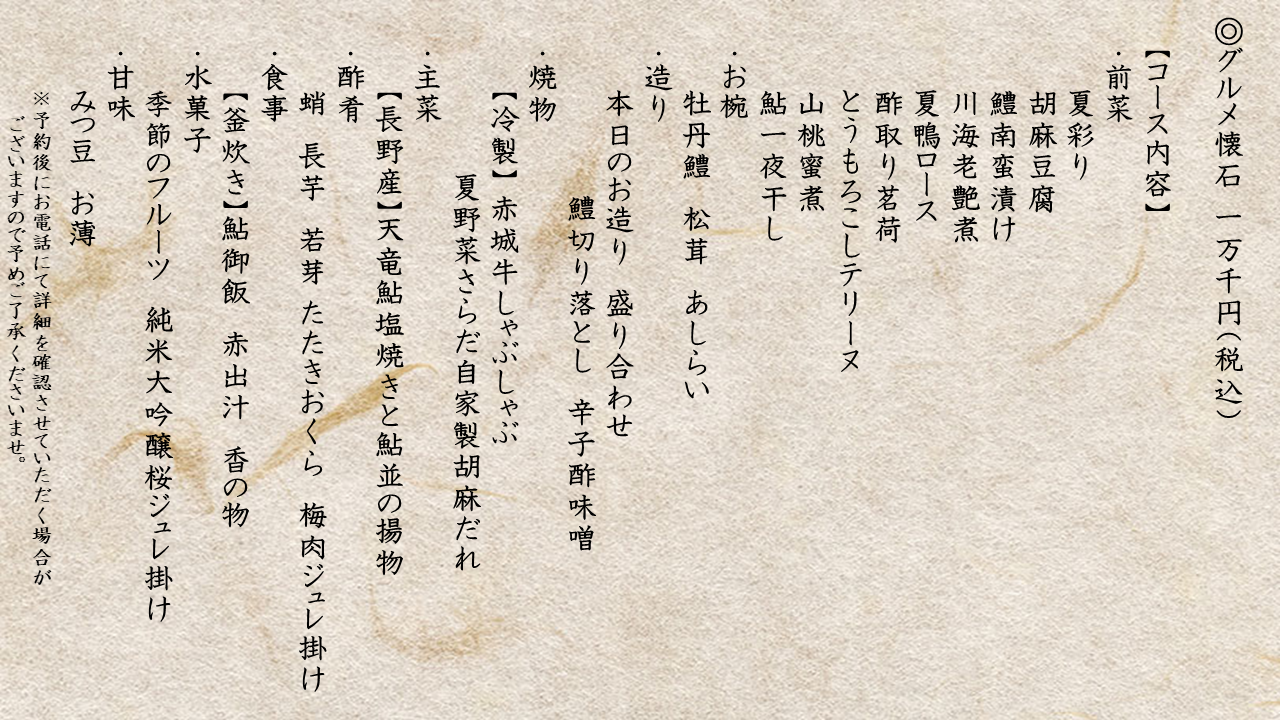 ◎グルメ懐石　一万千円（税込）
【コース内容】
・前菜
夏彩り
胡麻豆腐
鱧南蛮漬け
川海老艶煮
夏鴨ロース
酢取り茗荷
とうもろこしテリーヌ
山桃蜜煮
鮎一夜干し
・お椀
牡丹鱧　松茸　あしらい
・造り
本日のお造り　盛り合わせ
鱧切り落とし　辛子酢味噌
・焼物
【冷製】赤城牛しゃぶしゃぶ
夏野菜さらだ自家製胡麻だれ
・主菜
【長野産】天竜鮎塩焼きと鮎並の揚物
・酢肴
蛸　長芋　若芽　たたきおくら　梅肉ジュレ掛け
・食事
【釜炊き】鮎御飯　赤出汁　香の物
・水菓子
季節のフルーツ　純米大吟醸桜ジュレ掛け
・甘味
みつ豆　お薄
※予約後にお電話にて詳細を確認させていただく場合が
ございますので予めご了承くださいませ。